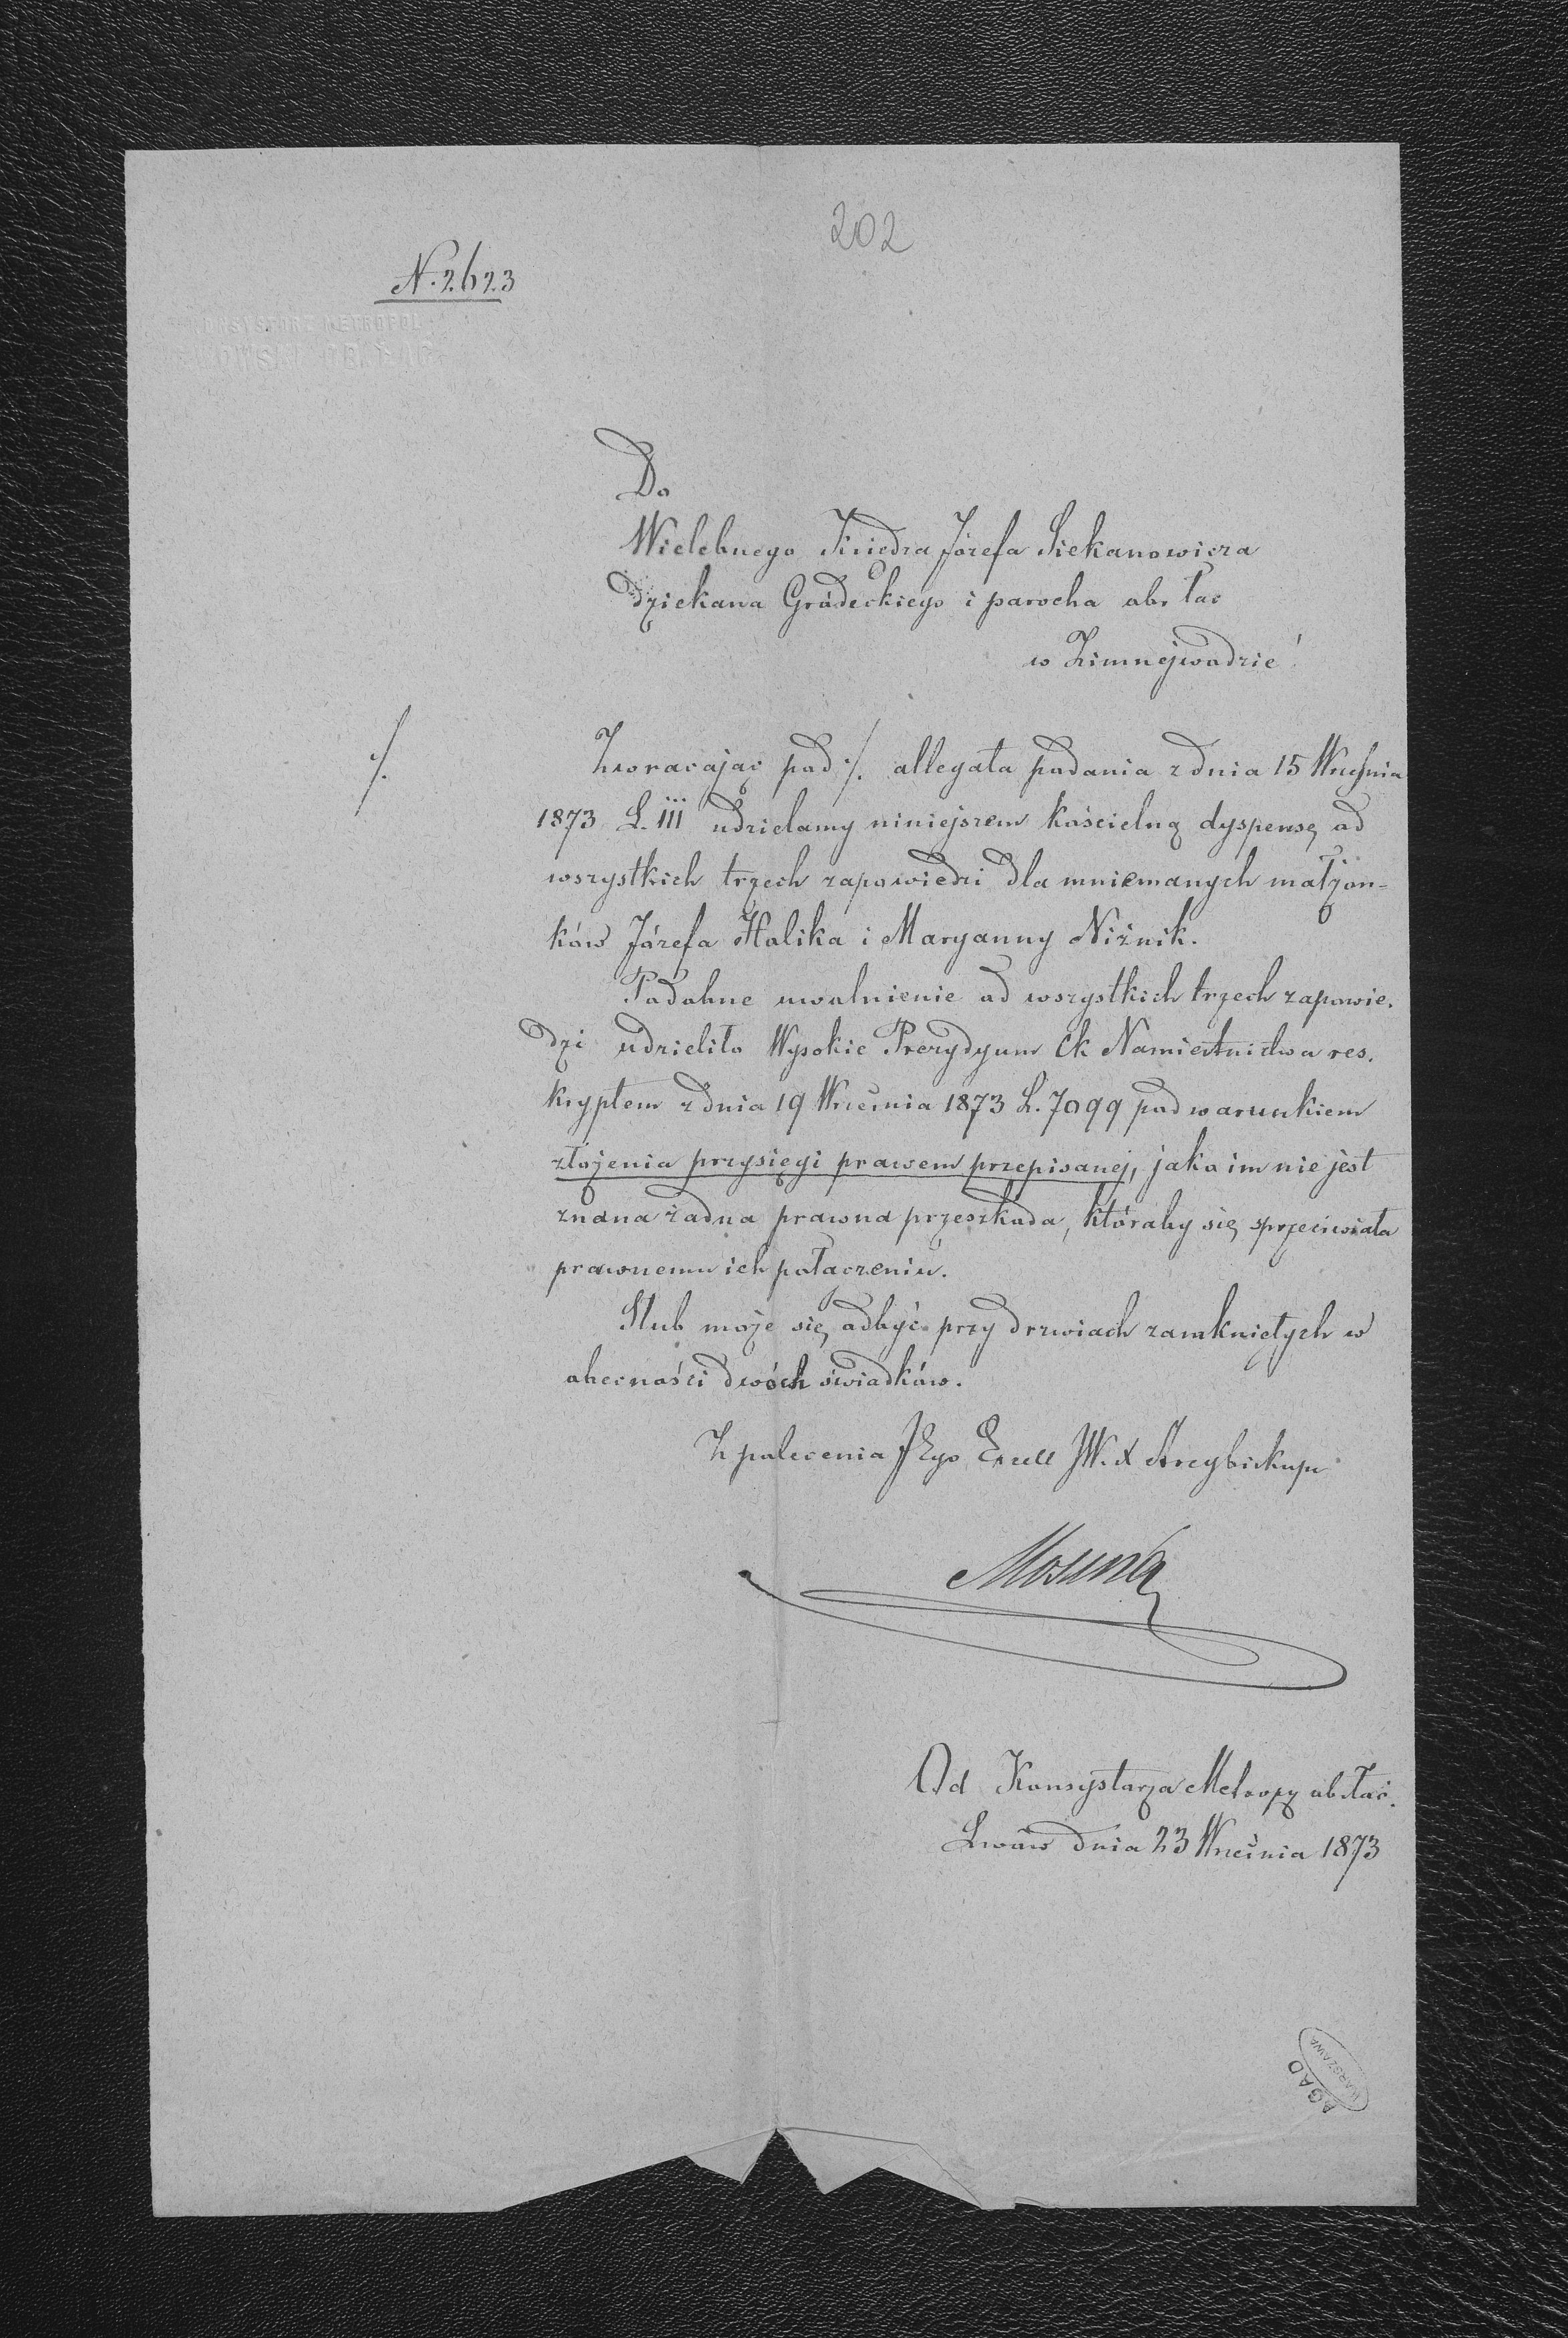 202
N. 2623
KONSYSTORZ METROPOL
LWOWSKI OBRZ. ŁAC.
Do
Wielebnego Księdza Józefa Siekanowicza
dziekana Gródeckiego i parocha obr. łac
w Zimnejwodzie
./.
Zwracając pod ./. allegata podania z dnia 15 Września
1873 L. 111 udzielamy niniejszem kościelną dyspensę od
wszystkich trzech zapowiedzi dla mniemanych małżon-
ków Józefa Halika i Maryanny Niżnik.
Podobne uwolnienie od wszystkich trzech zapowie-
dzi udzieliło Wysokie Prezydyum Ck Namiestnictwa res-
kryptem z dnia 19 Września 1873 L. 7099 pod warunkiem
złożenia przysięgi prawem przepisanej, jako im nie jest
znana żadna prawna przeszkoda, któraby się sprzeciwiała
prawnemu ich połączeniu.
Ślub może się odbyć przy drzwiach zamkniętych w
obecności dwóch świadków.
Z polecenia JEgo Excell JW. X Arcybiskupa
Od Konsystorza Metropol ob. łac.
Lwów dnia 23 Września 1873
AGAD
WARSZAWA